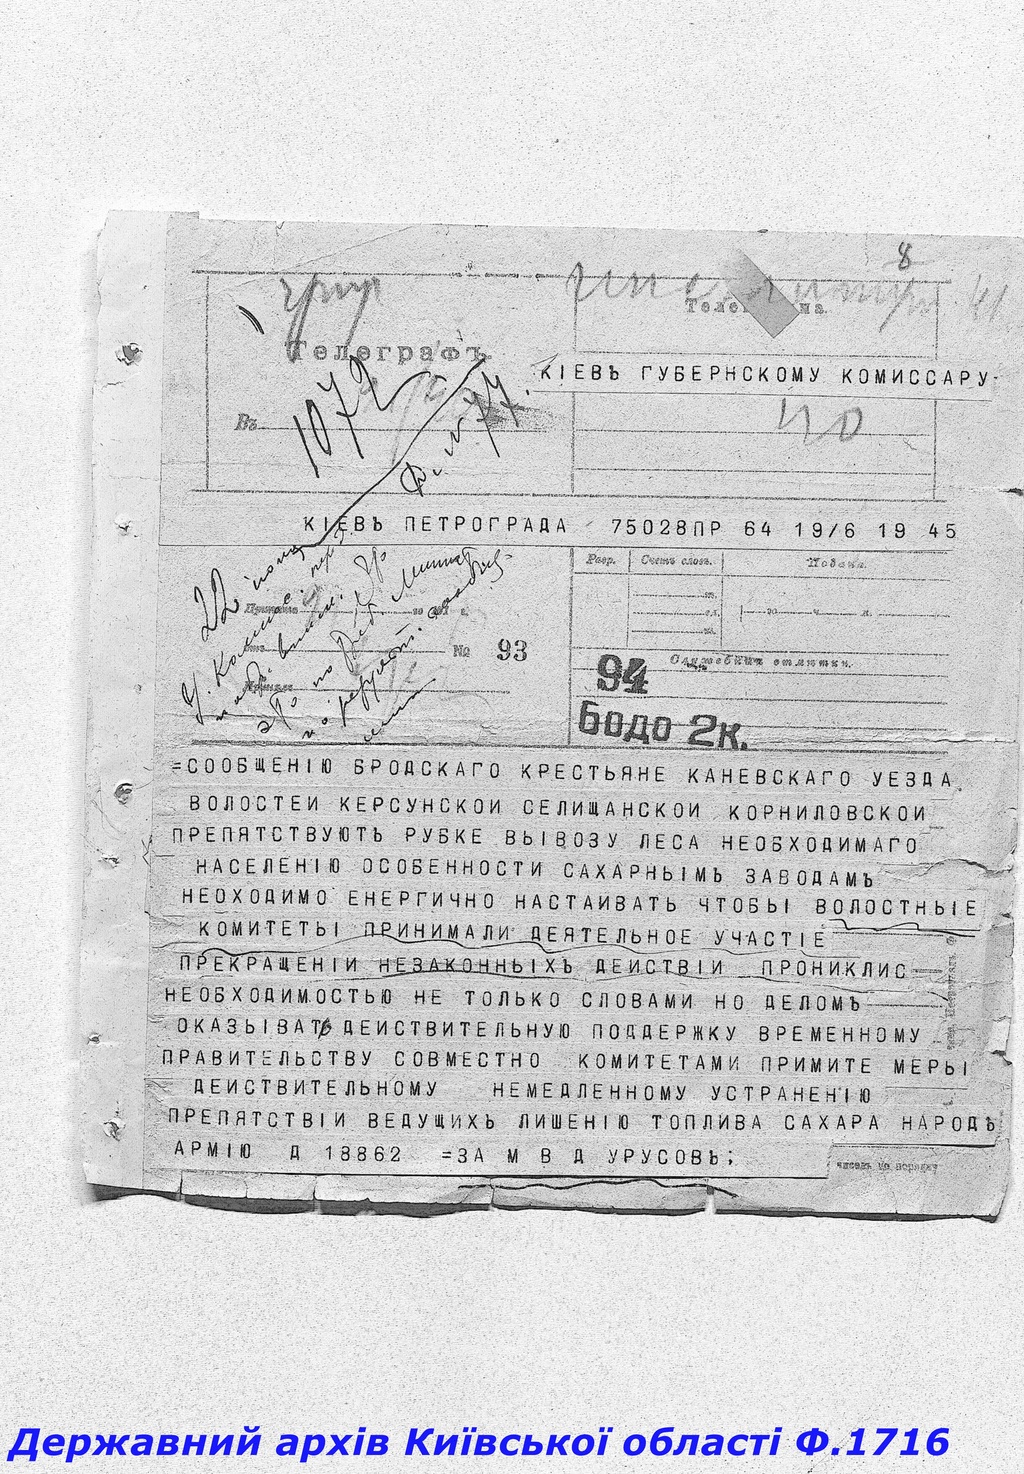 8
Телеграфъ
КІЕВЪ ГУБЕРНСКОМУ КОМИССАРУ
1072
40
Въ
КІЕВЪ ПЕТРОГРАДА 75028ПР 64 19/6 19 45
Разр.
Счетъ словъ.
Подана.
22
№ 93
94
Служебныя отмѣтки.
Бодо 2к.
=СООБЩЕНІЮ БРОДСКАГО КРЕСТЬЯНЕ КАНЕВСКАГО УЕЗДА
ВОЛОСТЕИ КЕРСУНСКОИ СЕЛИЩАНСКОИ КОРНИЛОВСКОИ
ПРЕПЯТСТВУЮТЬ РУБКЕ ВЫВОЗУ ЛЕСА НЕОБХОДИМАГО
НАСЕЛЕНІЮ ОСОБЕННОСТИ САХАРНЫМЪ ЗАВОДАМЪ
НЕОХОДИМО ЕНЕРГИЧНО НАСТАИВАТЬ ЧТОБЫ ВОЛОСТНЫЕ
КОМИТЕТЫ ПРИНИМАЛИ ДЕЯТЕЛЬНОЕ УЧАСТІЕ
ПРЕКРАЩЕНІИ НЕЗАКОННЫХЪ ДЕИСТВІИ ПРОНИКЛИС
НЕОБХОДИМОСТЬЮ НЕ ТОЛЬКО СЛОВАМИ НО ДЕЛОМЪ
ОКАЗЫВАТЬ ДЕИСТВИТЕЛЬНУЮ ПОДДЕРЖКУ ВРЕМЕННОМУ
ПРАВИТЕЛЬСТВУ СОВМЕСТНО КОМИТЕТАМИ ПРИМИТЕ МЕРЫ
ДЕИСТВИТЕЛЬНОМУ НЕМЕДЛЕННОМУ УСТРАНЕНІЮ
ПРЕПЯТСТВІИ ВЕДУЩИХЬ ЛИШЕНІЮ ТОПЛИВА САХАРА НАРОДЪ
АРМІЮ Д 18862 =ЗА М В Д УРУСОВЪ;
чиселъ по порядку
Державний архів Київської області Ф.1716